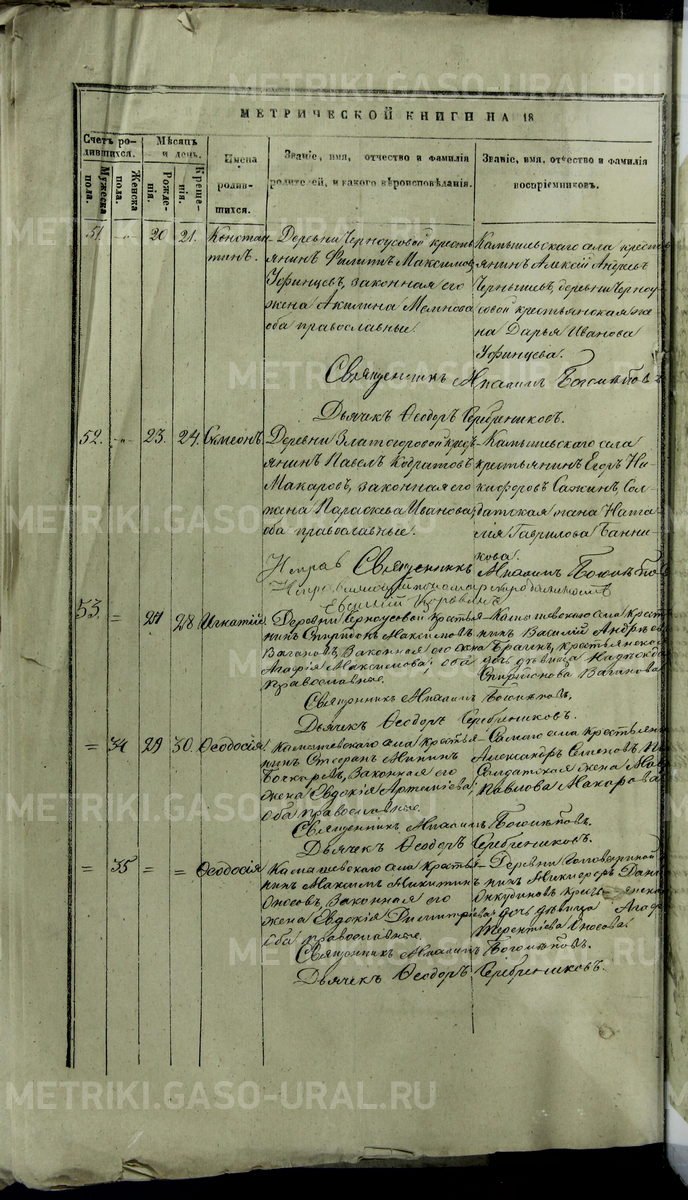 МЕТРИЧЕСКОЙ КНИГИ НА 18
Счетъ родившихся.
Мужеска пола.
Женска пола.
Мѣсяцъ и день.
Рожденія.
Крещенія.
Имена родившихся.
Званіе, имя, отчество и фамилія родителей, и какого вѣроисповѣданія.
Званіе, имя, отчество и фамилія воспріемниковъ.
51. -„- 20 21. Констан
тинъ.
Деревни Черноусовой кресть
янинъ Филиппъ Максимовъ
Уфинцевъ, законная его
жена Акилина Мемнова
оба православные.
Камышевскаго села кресть
янинъ Алексій Андреевъ
Чернышевъ, деревни Черноу
совой крестьянская же
на Дарья Иванова
Уфинцева.
Священникъ
Дьячекъ Ѳеодоръ Серебрениковъ.
52. -„- 23. 24. Симеонъ.
Деревни Златогоровой крес
янинъ Павелъ Кодратовъ
Макаровъ, законная его
жена Параскева Иванова;
оба православные.
Камышевскаго села
крестьянинъ Егоръ Ни
кифоровъ Сажинъ Сол
датская жена Ната
лія Гаврилова Банни
кова.
Священникъ
53. = 27 28 Игнатій.
Деревни Черноусовой крестья
нинъ Спиридонъ Максимовъ
Вагановъ, Законная его жена
Агафія Максимова; оба
православные.
Камышевскаго села крест
нинъ Василій Андрѣев
Брагинъ, крестьянско
дочь дѣвица Надежда
Спиридонова Ваганова
Священникъ
Дьячекъ Ѳеодоръ Серебрениковъ.
= 34 29 30. Ѳеодосія
Камышевскаго села крестья
нинъ Стефанъ Мининъ
Бочкаревъ, Законная его
жена Евдокія Артемьева,
оба православные.
Самаго села крестьяни
Александръ Семеновъ
Солдатская жена
Павлова Макарова
Священникъ
Дьячекъ Ѳеодоръ Серебрениковъ.
= 35 = = Ѳеодосія
Камышевскаго села крестья
нинъ Максимъ Никитинъ
Оносовъ, Законная его
жена Евдокія Димитріева
оба православные.
Деревни
нинъ Никифоръ Дани
дочь дѣвица Агаф
Терентіева Оносова.
Священникъ
Дьячекъ Ѳеодоръ Серебрениковъ.
METRIKI.GASO-URAL.RU